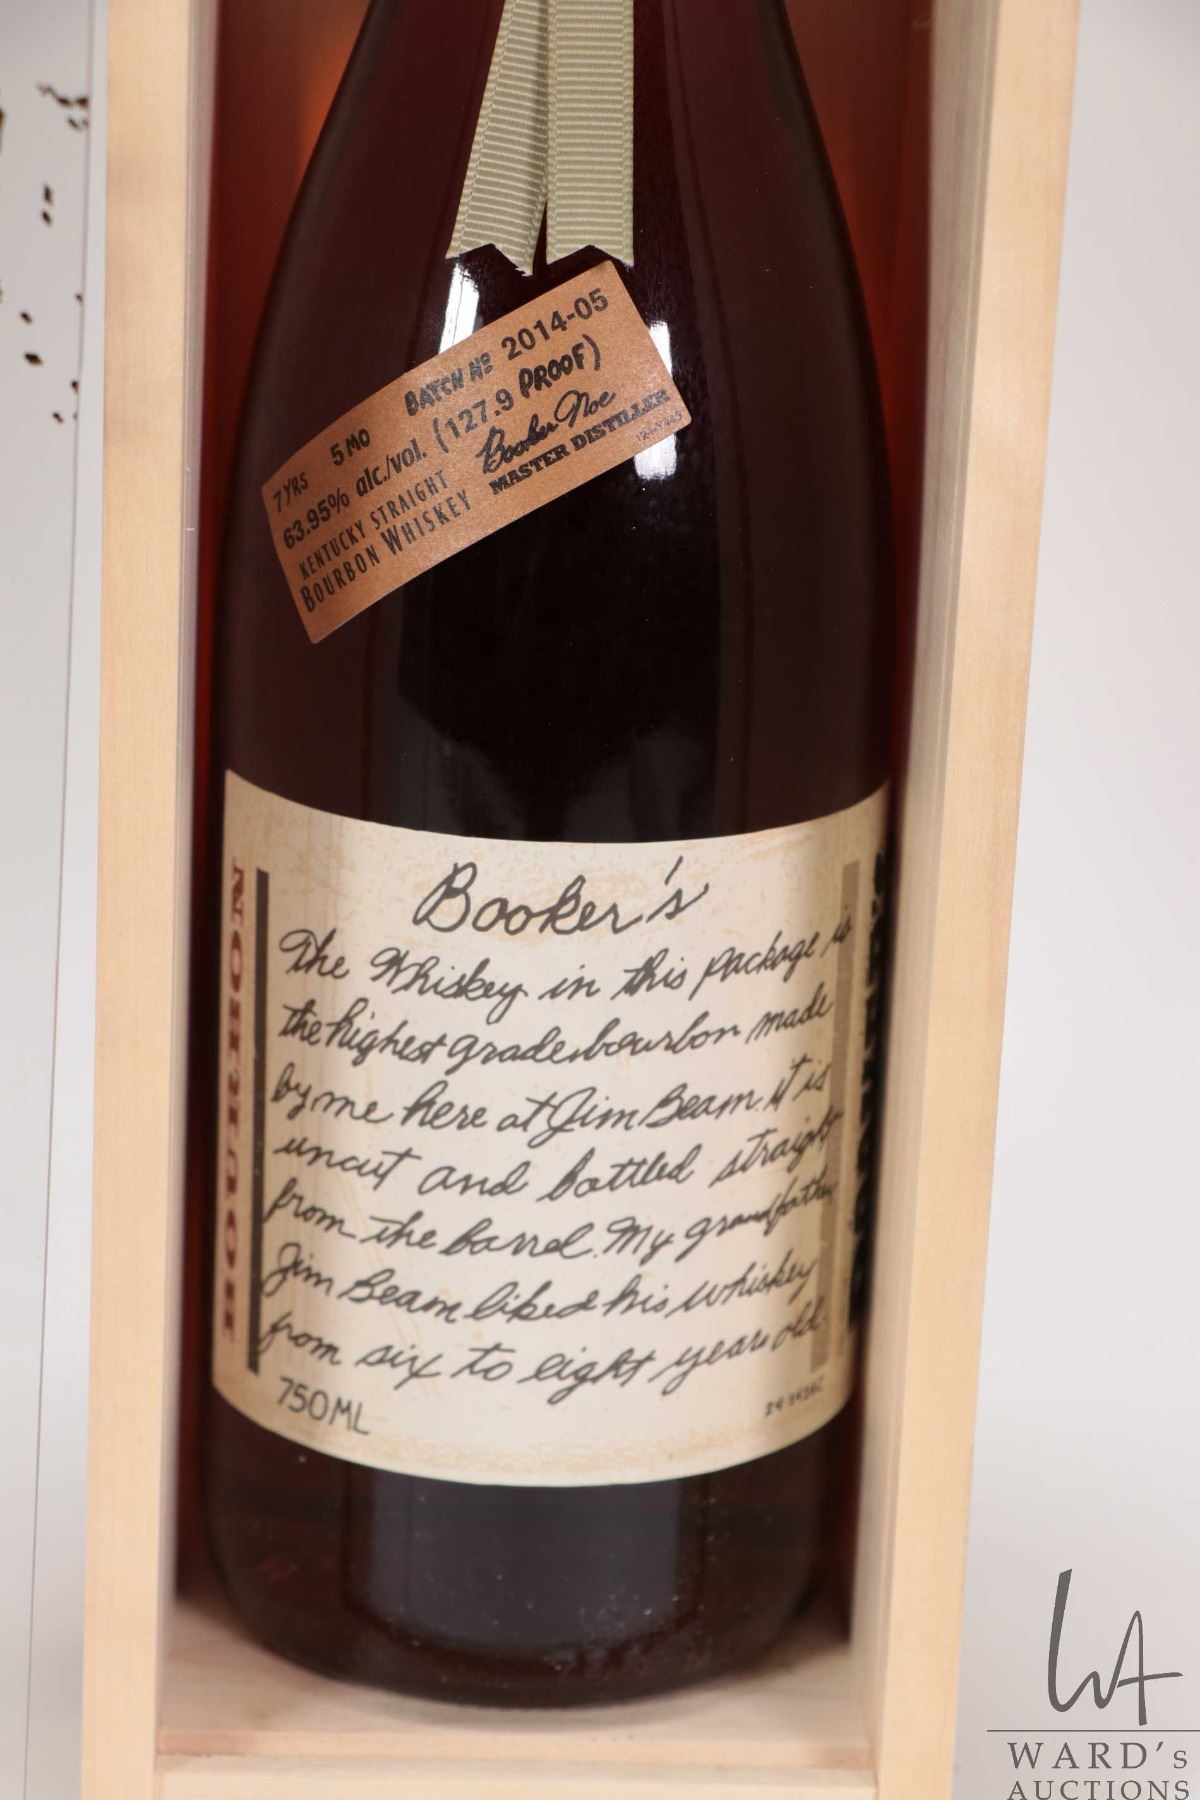 7 YRS 5 MO BATCH Nº 2014-05
63.95% alc./vol. (127.9 PROOF)
KENTUCKY STRAIGHT
BOURBON WHISKEY
Booker Noe
MASTER DISTILLER
NOHLUEOH
Booker's
The Whiskey in this package is
the highest grade bourbon made
by me here at Jim Beam. it is
uncut and bottled straight
from the barrel. My grandfather,
Jim Beam liked his whiskey
from six to eight years old.
750ML
WARD's
AUCTIONS